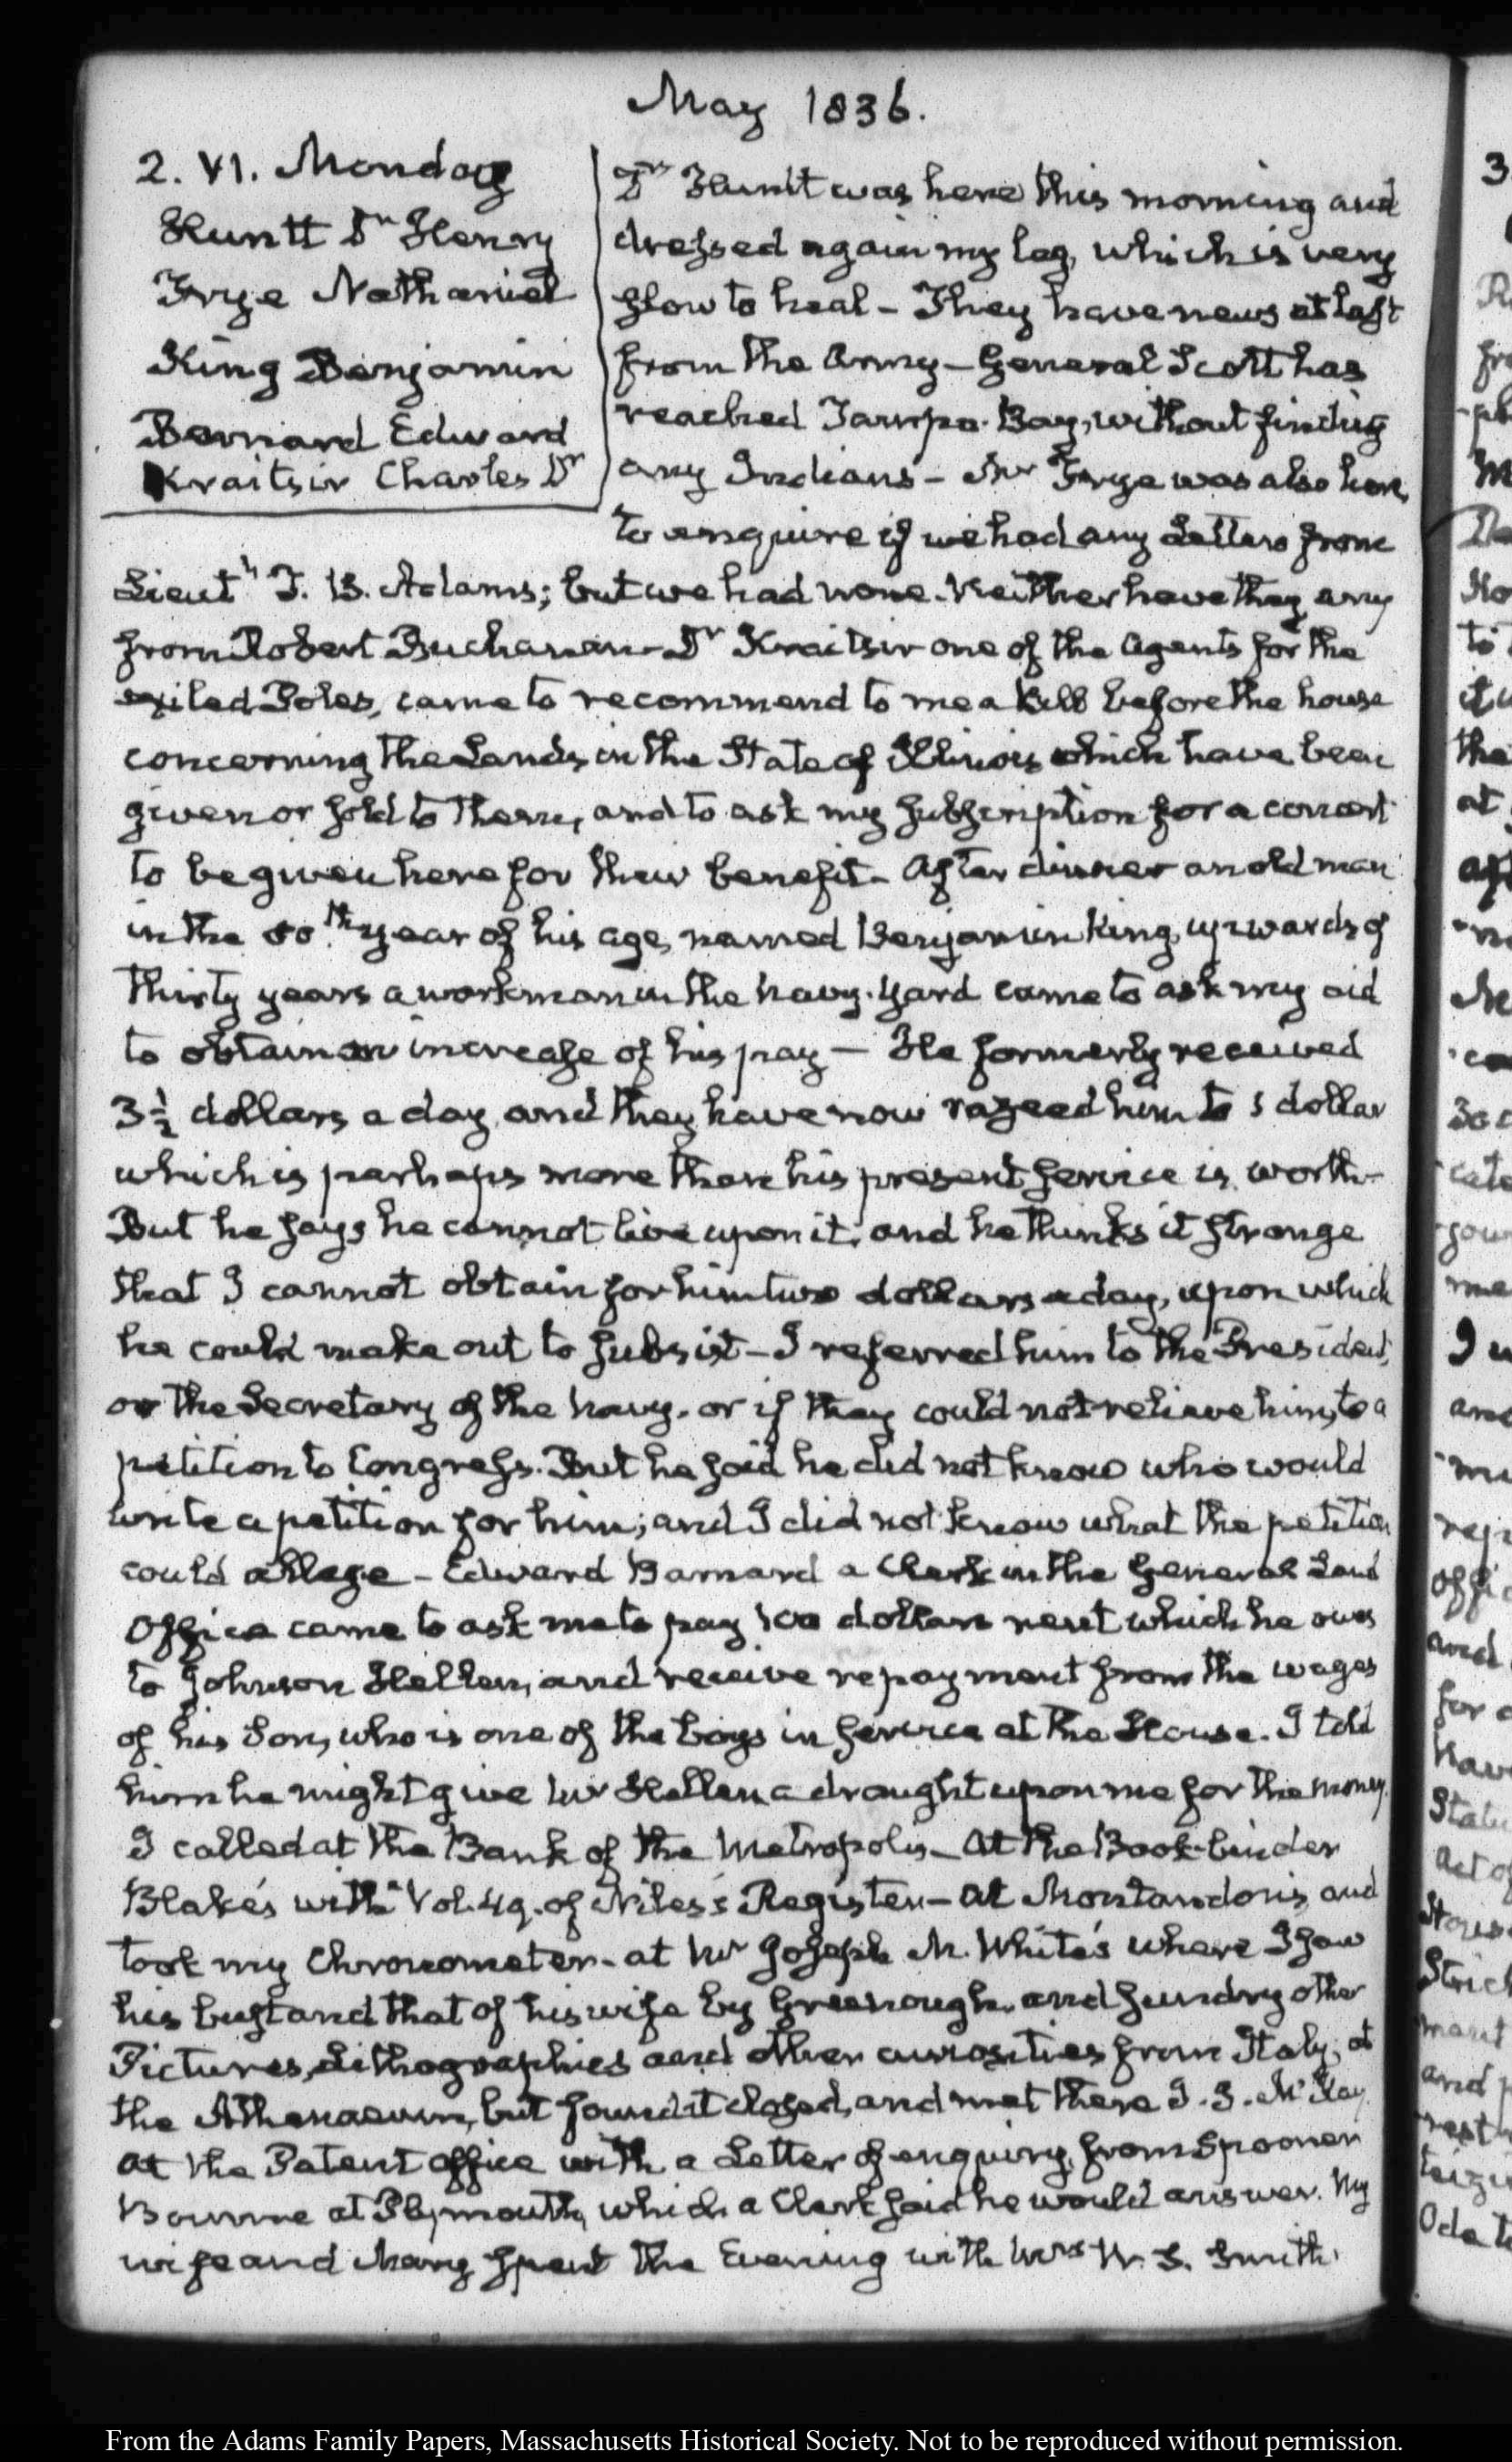 May 1836.
2. VI. Monday
Huntt Dr Henry
Frye Nathaniel
King Benjamin
Barnard Edward
Kraitsir Charles Dr
Dr Huntt was here this morning and
dressed again my leg, which is very
slow to heal – They have news at last
from the Army – General Scott has
reached Tampa-Bay, without finding
any Indians – Mr Frye was also here,
to enquire if we had any Letters from
Lieutt J. B. Adams; but we had none. Neither have they any
from Robert Buchanan – Dr Kraitsir one of the Agents for the
exiled Poles, came to recommend to me a Bill before the house
concerning the Lands in the State of Illinois which have been
given or sold to them, and to ask my subscription for a concert
to be given here for their benefit – After dinner an old man
in the 80th year of his age, named Benjamin King, upwards of
thirty years a workman in the Navy-Yard came to ask my aid
to obtain an increase of his pay – He formerly received
3½ dollars a day, and they have now razeed him to 1 dollar
which is perhaps more than his present service is worth –
But he says he cannot live upon it, and he thinks it strange
that I cannot obtain for him two dollars a day, upon which
he could make out to subsist – I referred him to the President,
or the Secretary of the Navy, or if they could not relieve him, to a
petition to Congress. But he said he did not know who would
write a petition for him; and I did not know what the petition
could allege – Edward Barnard a Clerk in the General Land
Office came to ask me to pay 100 dollars rent which he owes
to Johnson Hellen, and receive repayment from the wages
of his Son, who is one of the boys in service at the House. I told
him he might give Mr Hellen a draught upon me for the money.
I called at the Bank of the Metropolis – At the Book-binder
Blake's with Vol. 49. of Niles's Register – at Montandon's, and
took my Chronometer – at Mr Joseph M. White's where I saw
his bust and that of his wife by Greenough, and sundry other
Pictures, Lithographies and other curiosities from Italy; at
the Athenaeum, but found it closed, and met there J. J. McKay
At the Patent office with a Letter of enquiry, from Spooner
Bourne at Plymouth, which a Clerk said he would answer. My
wife and Mary spent the Evening with Mrs W. S. Smith.
From the Adams Family Papers, Massachusetts Historical Society. Not to be reproduced without permission.